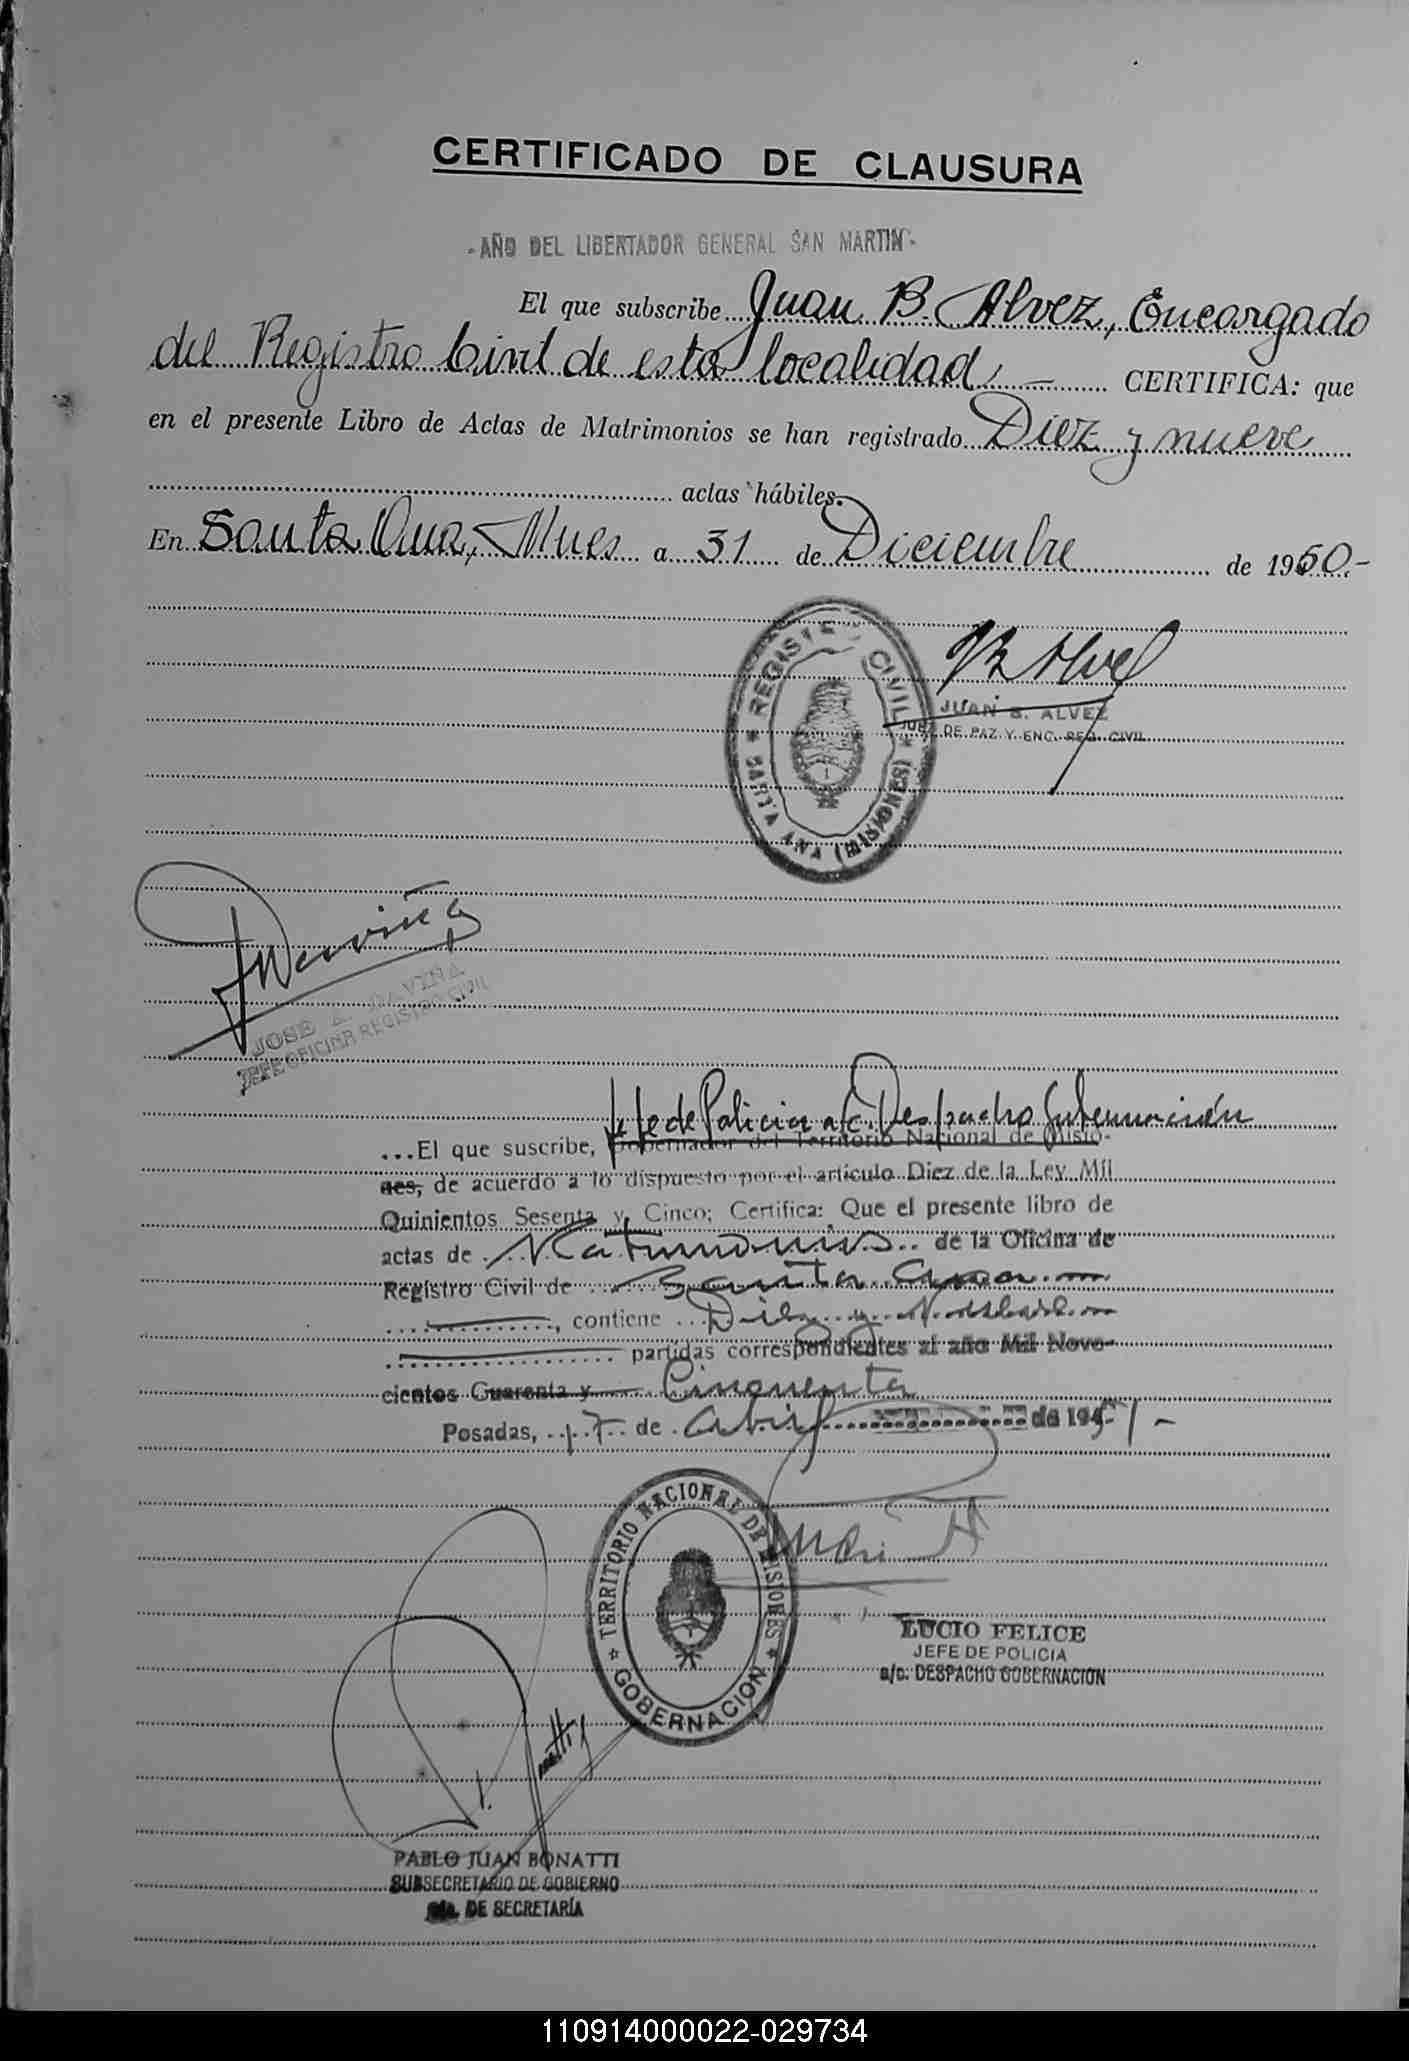 CERTIFICADO DE CLAUSURA
-AÑO DEL LIBERTADOR GENERAL SAN MARTIN-
El que subscribe Juan B. Alvez, Encargado
del Registro Civil de esta localidad, — CERTIFICA: que
en el presente Libro de Actas de Matrimonios se han registrado Diez y nueve
actas hábiles.
En Santa Ana, Mnes a 31 de Diciembre de 1950.-
REGISTRO CIVIL
SANTA ANA (MISIONES)
JBAlvez
JUAN B. ALVEZ
JUEZ DE PAZ Y ENC. REG. CIVIL
JDaviña
JOSE A. DAVIÑA
JEFE OFICINA REGISTRO CIVIL
Jefe de Policia a/c. Despacho Gobernación
...El que suscribe, Gobernador del Territorio Nacional de Misio-
nes, de acuerdo a lo dispuesto por el artículo Diez de la Ley Mil
Quinientos Sesenta y Cinco; Certifica: Que el presente libro de
actas de Matrimonios de la Oficina de
Registro Civil de Santa Ana.—
contiene Diez y Nueve.—
partidas correspondientes al año Mil Nove-
cientos Cuarenta y Cincuenta
Posadas, 17 de Abril de 1951-
TERRITORIO NACIONAL DE MISIONES
GOBERNACION
LUCIO FELICE
JEFE DE POLICIA
a/c. DESPACHO GOBERNACION
PABLO JUAN BONATTI
SUBSECRETARIO DE GOBIERNO
DE SECRETARÍA
110914000022-029734